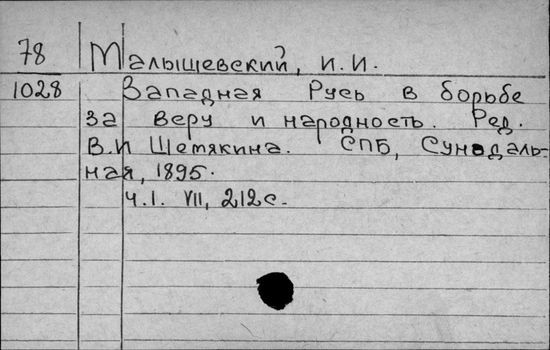 78 Малышевский, И.И.
1028 Западная Русь в борьбе
за веру и народность. Ред.
В.И Шемякина. СПБ, Сунодаль-
ная, 1895.
Ч.I. VII, 212с.